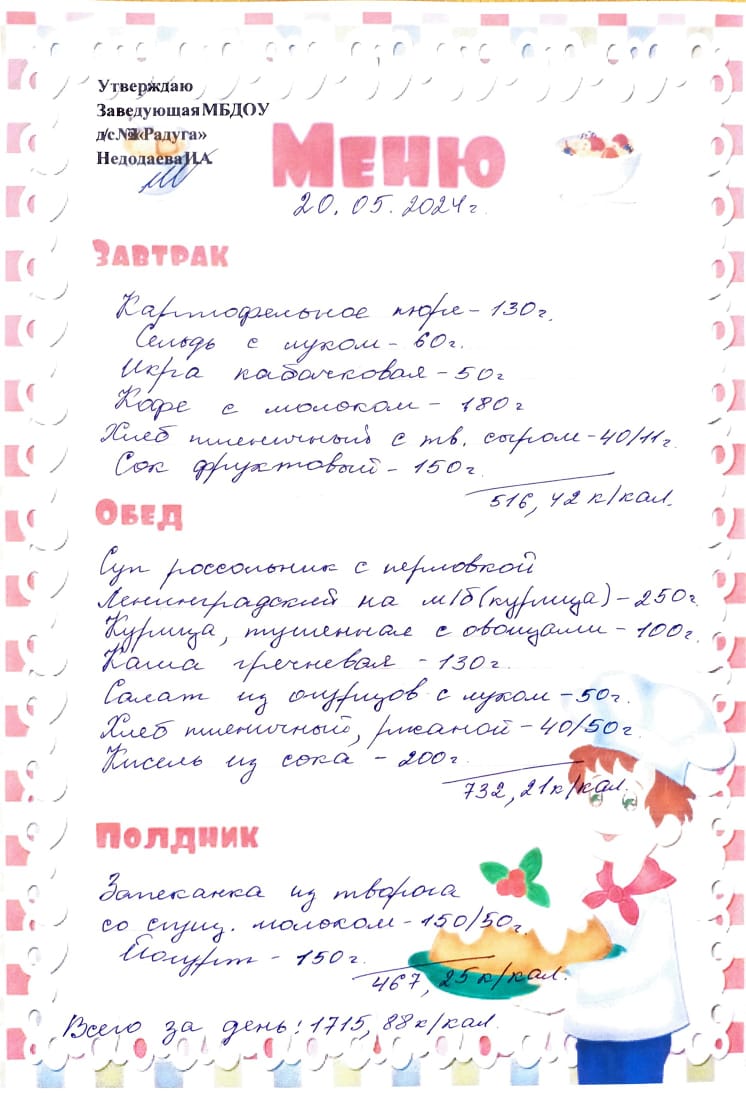 Утверждаю
Заведующая МБДОУ
д/с «Радуга»
Недодаева И.А.
Меню
20.05.2024г.
Завтрак
Картофельное пюре - 130г.
Сельдь с луком - 60г.
Икра кабачковая - 50г
Кофе с молоком - 180г
Хлеб пшеничный с тв. сыром - 40/11г.
Сок фруктовый - 150г.
516,42 к/кал.
Обед
Суп россольник с перловкой
Ленинградский на м/б (курица) - 250г.
Курица, тушенная с овощами - 100г.
Каша гречневая - 130г.
Салат из огурцов с луком - 50г.
Хлеб пшеничный, ржаной - 40/50г.
Кисель из сока - 200г.
732,21 к/кал.
Полдник
Запеканка из творога
со сгущ. молоком - 150/50г.
Йогурт - 150г.
467,25 к/кал.
Всего за день: 1715,88 к/кал.